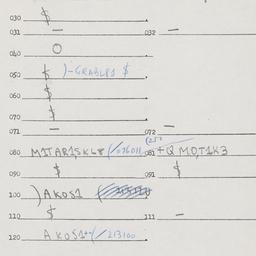 030 $
031 — 032 —
040 O
050 $ )-GRABLB1 $
060 $
070 $
071 — 072 —
080 M1TAR1SKL8 (/076011 081 +Q MOT1K3
090 $ 091 $
100 ) AKOS1
110 $ 111 —
120 AKOS1+(/213100